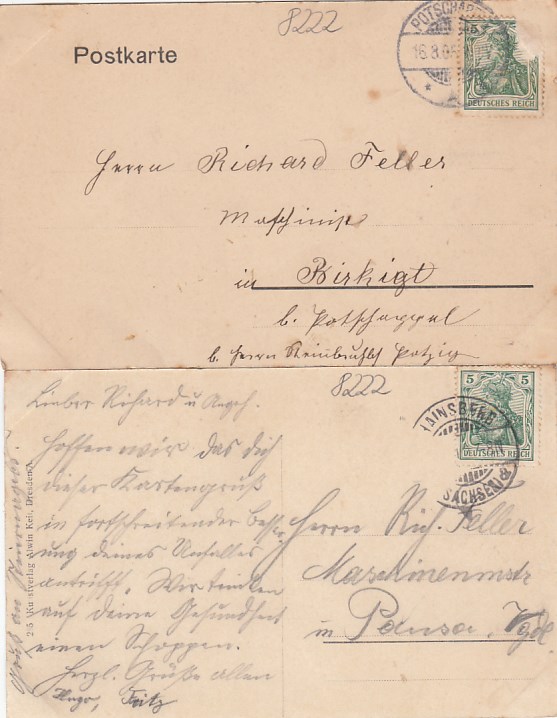 8222
Postkarte
POTSCHAPPEL
16.8.05
DEUTSCHES REICH
Herrn Richard Feller
Maschinist
in Birkigt
b. Potschappel
b. Herrn Steinbruchbs
8222
5 5
DEUTSCHES REICH
HAINSBERG
SACHSEN
Lieber Richard u Angeh.
Hoffen wir das dich
dieser Kartengruß
in fortschreitender Besse-
rung deines Unfalles
antrifft. Wir trinken
auf deine Gesundheit
einen Schoppen.
Herzl. Grüße allen
Hugo, Fritz
Gruß an
Kunstverlag Alwin Keil, Dresden
Herrn Rich. Feller
Maschinenmstr
in Pausa, Vgtl.